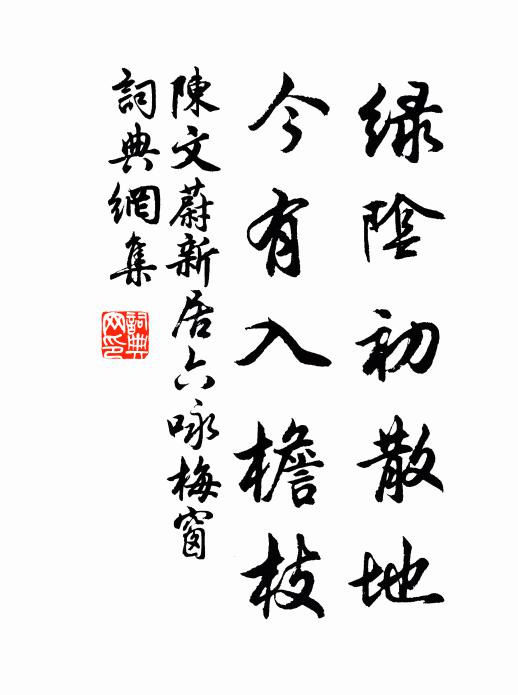 緑陰初散地
今有入檐枝
陳文蔚新居六咏梅窗
詞典網集
詞典網印